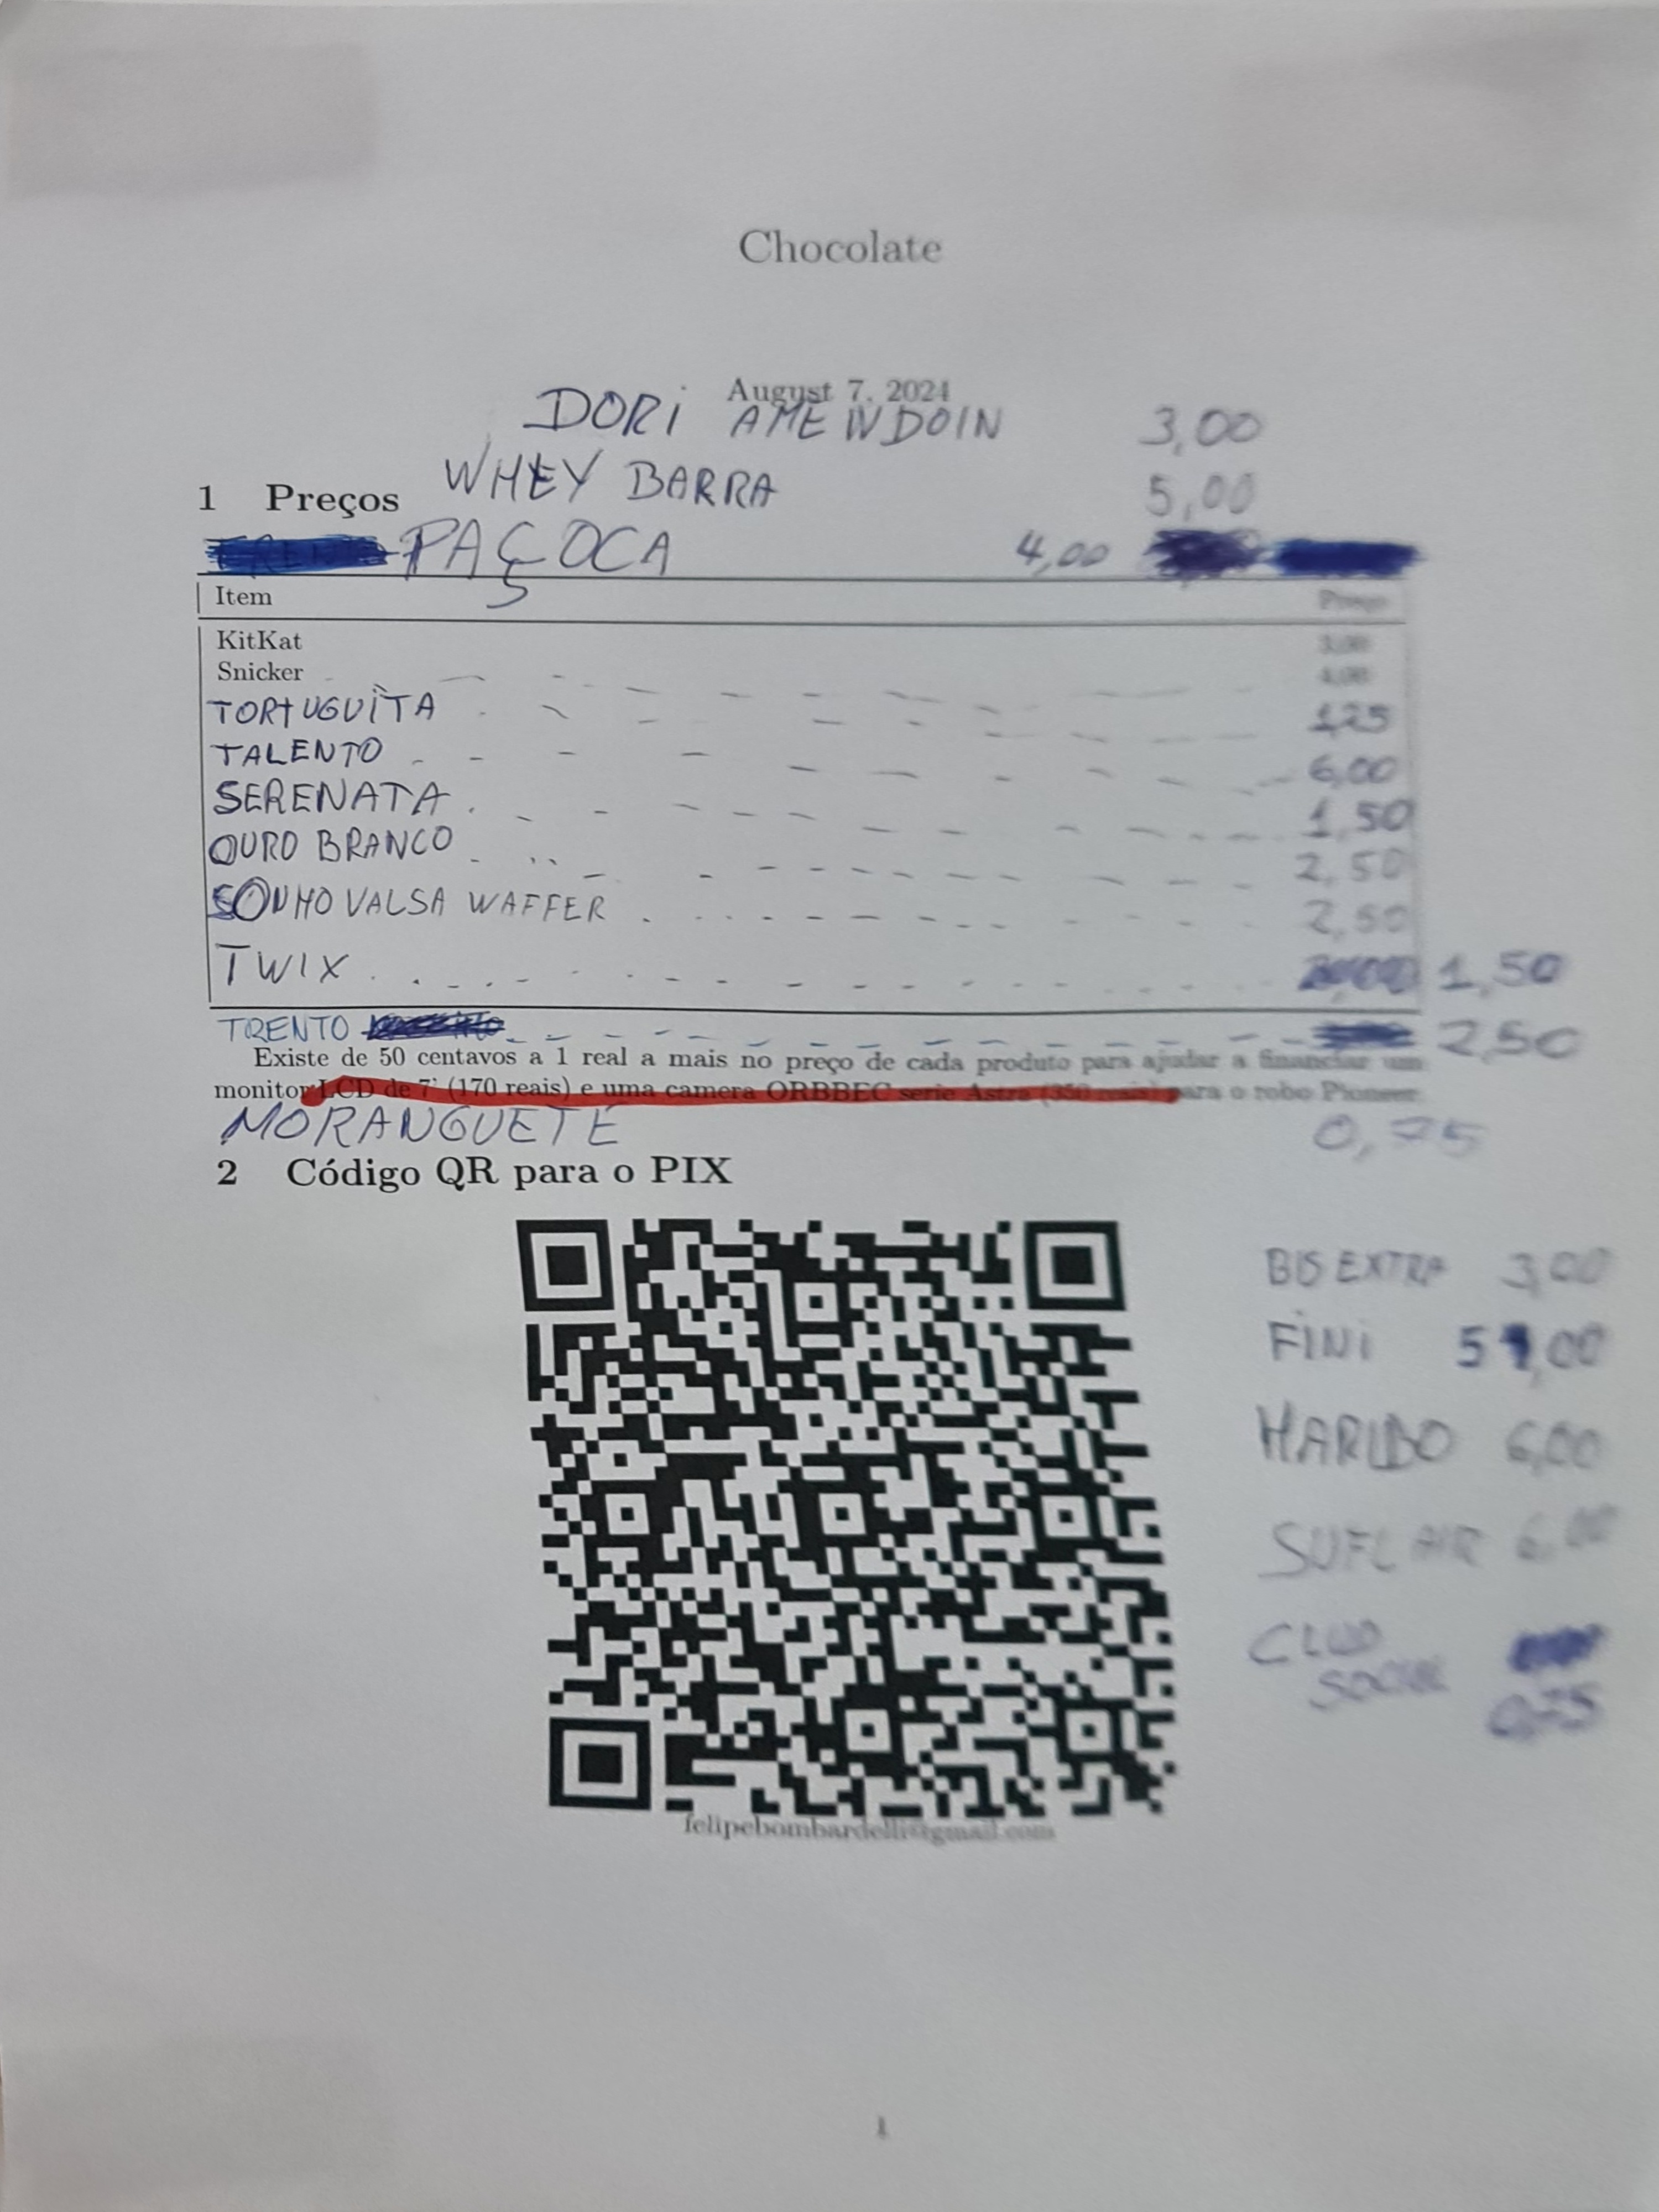 Chocolate
August 7, 2024
DORi AMEWDOIN 3,00
WHEY BARRA 5,00
1 Preços
PAÇOCA 4,00
Item Preço
KitKat 3,00
Snicker 4,00
TORTUGUiTA 1,25
TALENTO 6,00
SERENATA 1,50
OURO BRANCO 2,50
SONHO VALSA WAFFER 2,50
TWIX 1,50
TRENTO 2,50
Existe de 50 centavos a 1 real a mais no preço de cada produto para ajudar a financiar um
monitor LCD de 7' (170 reais) e uma camera ORBBEC serie Astra (350 reais) para o robo Pioneer.
MORANGUETE 0,75
2 Código QR para o PIX
BIS EXTRA 3,00
FiNi 5,00
HARIBO 6,00
SUFLAIR 6,00
CLUB
SOCIAL
0,75
felipebombardelli@gmail.com
1